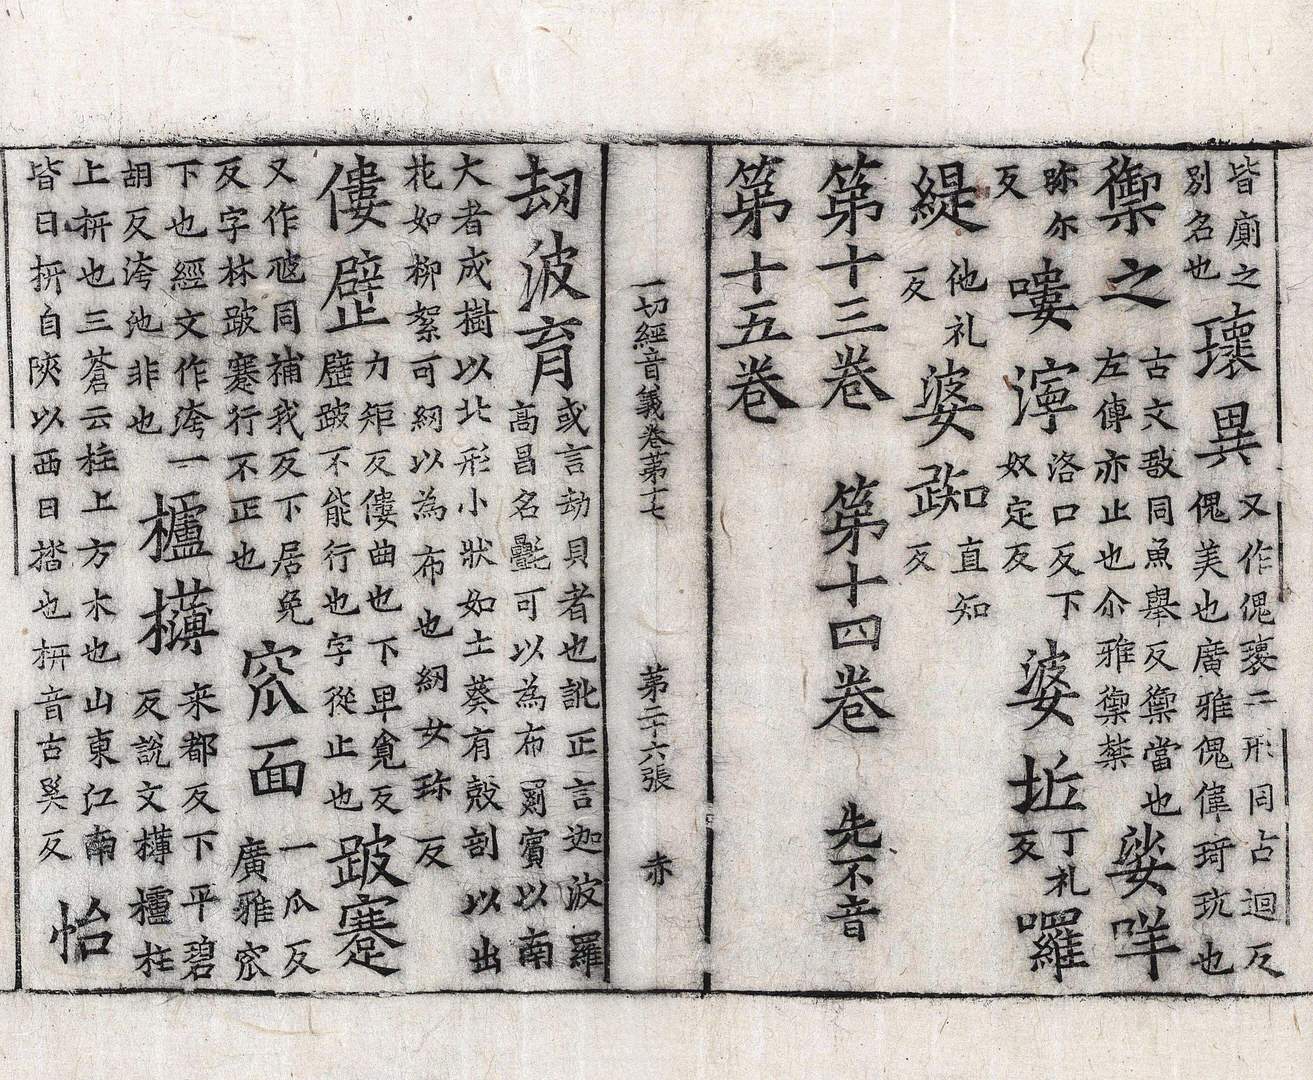 皆廁之
別名也
瓌異
又作傀瓌二形同占迴反
傀美也廣雅傀偉琦玩也
禦之
古文敔同魚舉反禦當也
左傳亦止也尒雅禦禁
婆咩
弥尔
反
嘍濘
洛口反下
奴定反
婆坵
丁礼
反
囉
緹
他礼
反
婆踟
直知
反
第十三卷 第十四卷 先不音
第十五卷
一切經音義卷第十七 第二十六張 赤
劫波育
或言劫貝者也訛正言迦波羅
高昌名㲲可以為布罽賓以南
大者成樹以北形小狀如土葵有殼剖以出
花如柳絮可紉以為布也紉女珎反
僂躄
力矩反僂曲也下卑覓反
躄跛不能行也字從止也
跛蹇
又作𡰁同補我反下居免
反字林跛蹇行不正也
窊面
一瓜反
廣雅窊
下也經文作洿一
胡反洿池非也
櫨欂
来都反下平碧
反說文欂櫨柱
上枅也三蒼云柱上方木也山東江南
皆曰枅自陝以西曰㭼也枅音古奚反
怡